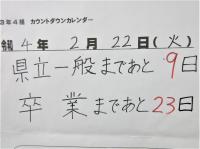 3年4組 カウントダウンカレンダー
令和 4年 2月 22日(火)
県立一般まであと 9日
卒業まであと 23日